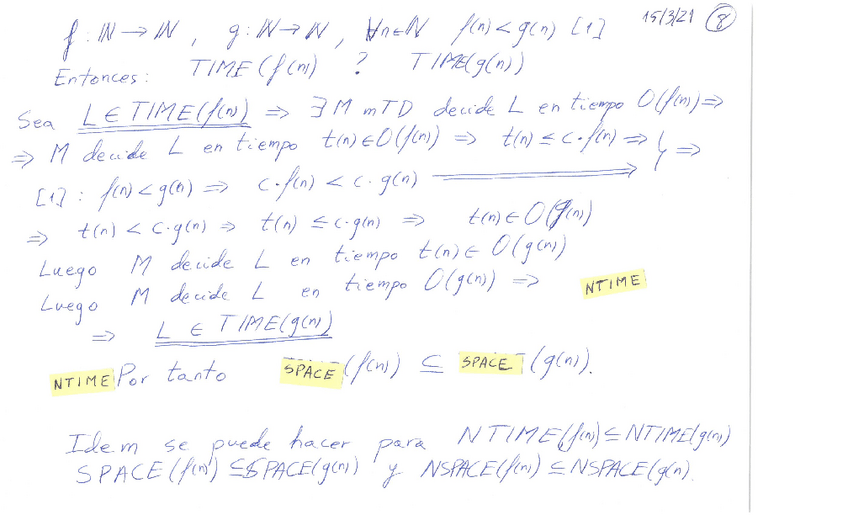 15/3/21 8
f : ℕ → ℕ , g : ℕ → ℕ , ∀n∈ℕ f(n) < g(n) [1]
Entonces: TIME(f(n)) ? TIME(g(n))
Sea L ∈ TIME(f(n)) ⇒ ∃ M mTD decide L en tiempo O(f(n)) ⇒
⇒ M decide L en tiempo t(n) ∈ O(f(n)) ⇒ t(n) ≤ c·f(n) ⇒ } ⇒
[1] : f(n) < g(n) ⇒ c·f(n) < c·g(n) ⇒
⇒ t(n) < c·g(n) ⇒ t(n) ≤ c·g(n) ⇒ t(n) ∈ O(g(n))
Luego M decide L en tiempo t(n) ∈ O(g(n))
Luego M decide L en tiempo O(g(n)) ⇒ NTIME
⇒ L ∈ TIME(g(n))
NTIME Por tanto SPACE (f(n)) ⊆ SPACE (g(n)).
Idem se puede hacer para NTIME(f(n)) ⊆ NTIME(g(n))
SPACE(f(n)) ⊆ SPACE(g(n)) y NSPACE(f(n)) ⊆ NSPACE(g(n).